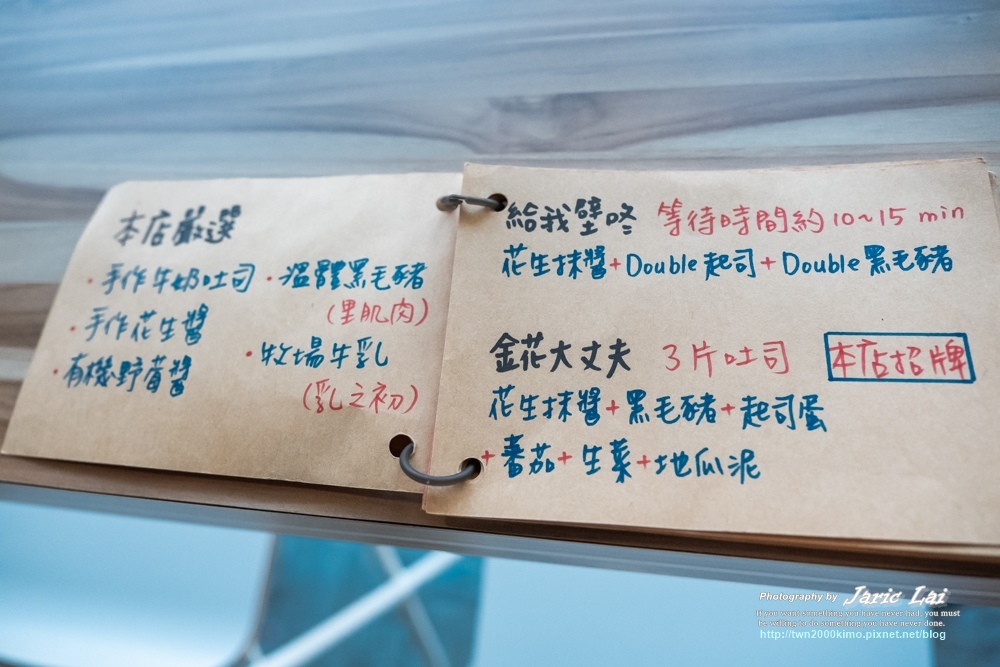 本店嚴選
・手作牛奶吐司
・手作花生醬
・有機野莓醬
・溫體黑毛豬
(里肌肉)
・牧場牛乳
(乳之初)
給我壁咚 等待時間約10~15 min
花生抹醬+Double起司+Double黑毛豬
金花大丈夫 3片吐司 本店招牌
花生抹醬+黑毛豬+起司蛋
+蕃茄+生菜+地瓜泥
Photography by Jaric Lai
If you want something you have never had, you must
be willing to do something you have never done.
http://twn2000kimo.pixnet.net/blog